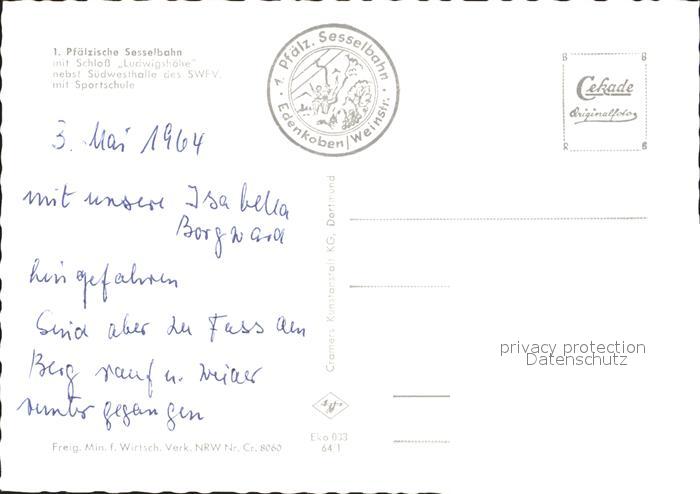 1. Pfälzische Sesselbahn
mit Schloß „Ludwigshöhe"
nebst Südwesthalle des SWFV.
mit Sportschule
1. Pfälz. Sesselbahn
Edenkoben/Weinstr.
Cekade
Originalfoto
3. Mai 1964
mit unsere Isabella
Borgward
hingefahren
Sind aber zu Fuss den
Berg rauf u. wieder
runter gegangen
Cramers Kunstanstalt KG, Dortmund
privacy protection
Datenschutz
Freig. Min. f. Wirtsch. Verk. NRW Nr. Cr. 8060
Eko 033
64 1